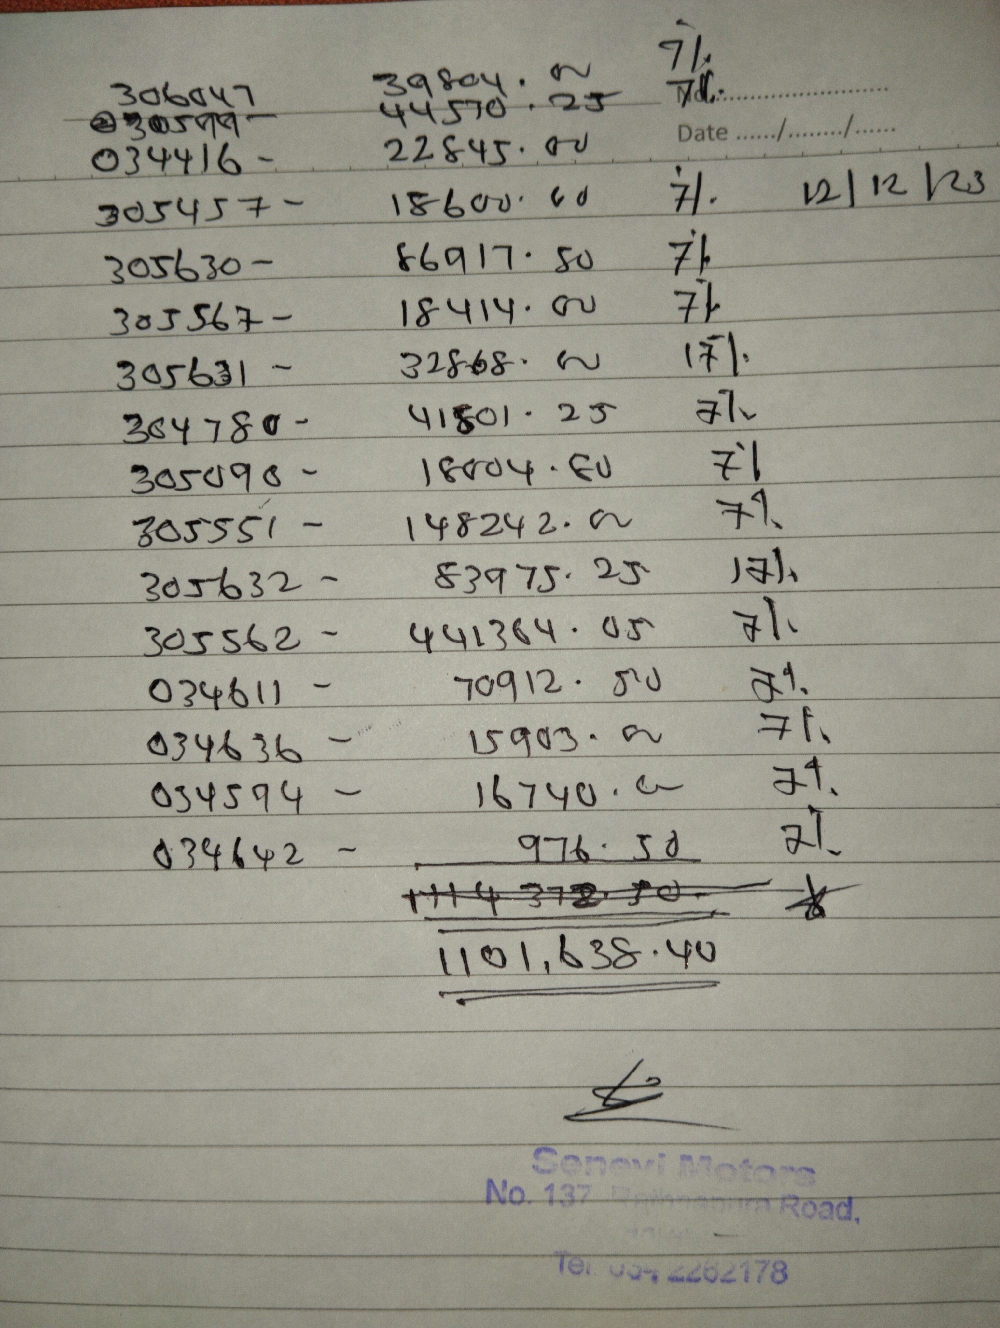 7%
306047 39804.00 7%
305799 44570.25
Date ....../......../......
034416 - 22845.00
305457 - 18600.00 7% 12/12/23
305630 - 86917.50 7%
305567 - 18414.00 7%
305631 - 32868.00 17%
304780 - 41801.25 7%
305090 - 18004.80 7%
305551 - 148242.00 7%
305632 - 83975.25 17%
305562 - 441364.05 7%
034611 - 70912.50 7%
034636 - 15903.00 7%
034594 - 16740.00 7%
034642 - 976.50 7%
1114372.50
1101,638.40
Senevi Motors
No. 137 Rathnapura Road,
Tel: 034 2262178